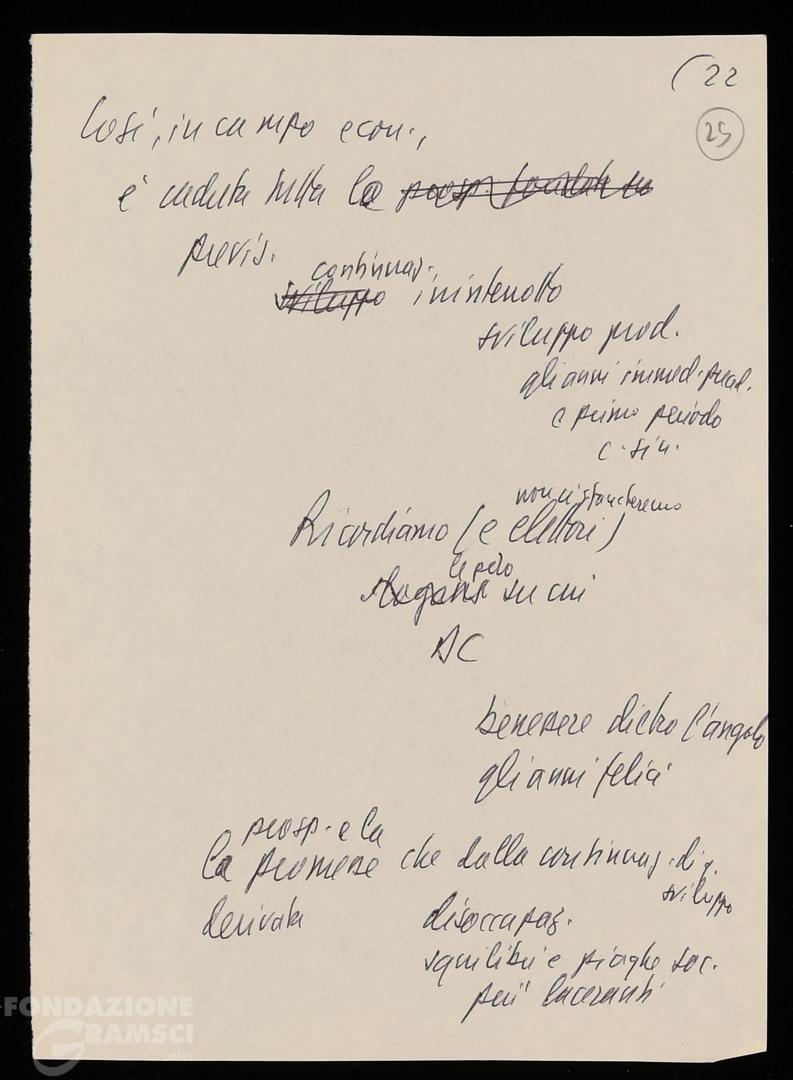 ( 22
25
Così, in campo econ.,
è caduta tutta la prosp. fondata su
previs.
continuaz.
sviluppo ininterrotto
sviluppo prod.
gli anni immed. prec.
e primo periodo
c. sin.
non ci stancheremo
Ricordiamo (e elettori)
le polo
slogans su cui
DC
benessere dietro l'angolo
gli anni felici
prosp. e la
la promessa che dalla continuaz. di q.
sviluppo
derivata disoccupaz.
squilibri e piaghe soc.
più laceranti
FONDAZIONE
GRAMSCI
onlus